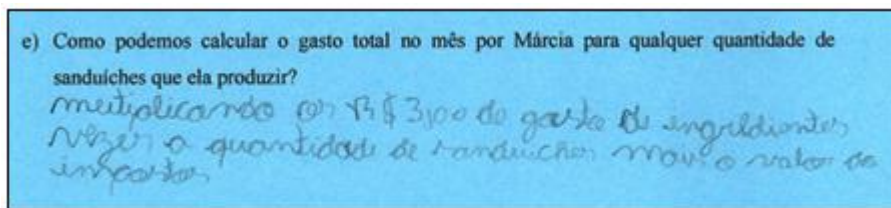 e) Como podemos calcular o gasto total no mês por Márcia para qualquer quantidade de
sanduíches que ela produzir?
multiplicando os R$ 3,00 do gasto de ingridientes
vezes a quantidade de sanduiches mais o valor do
impostos